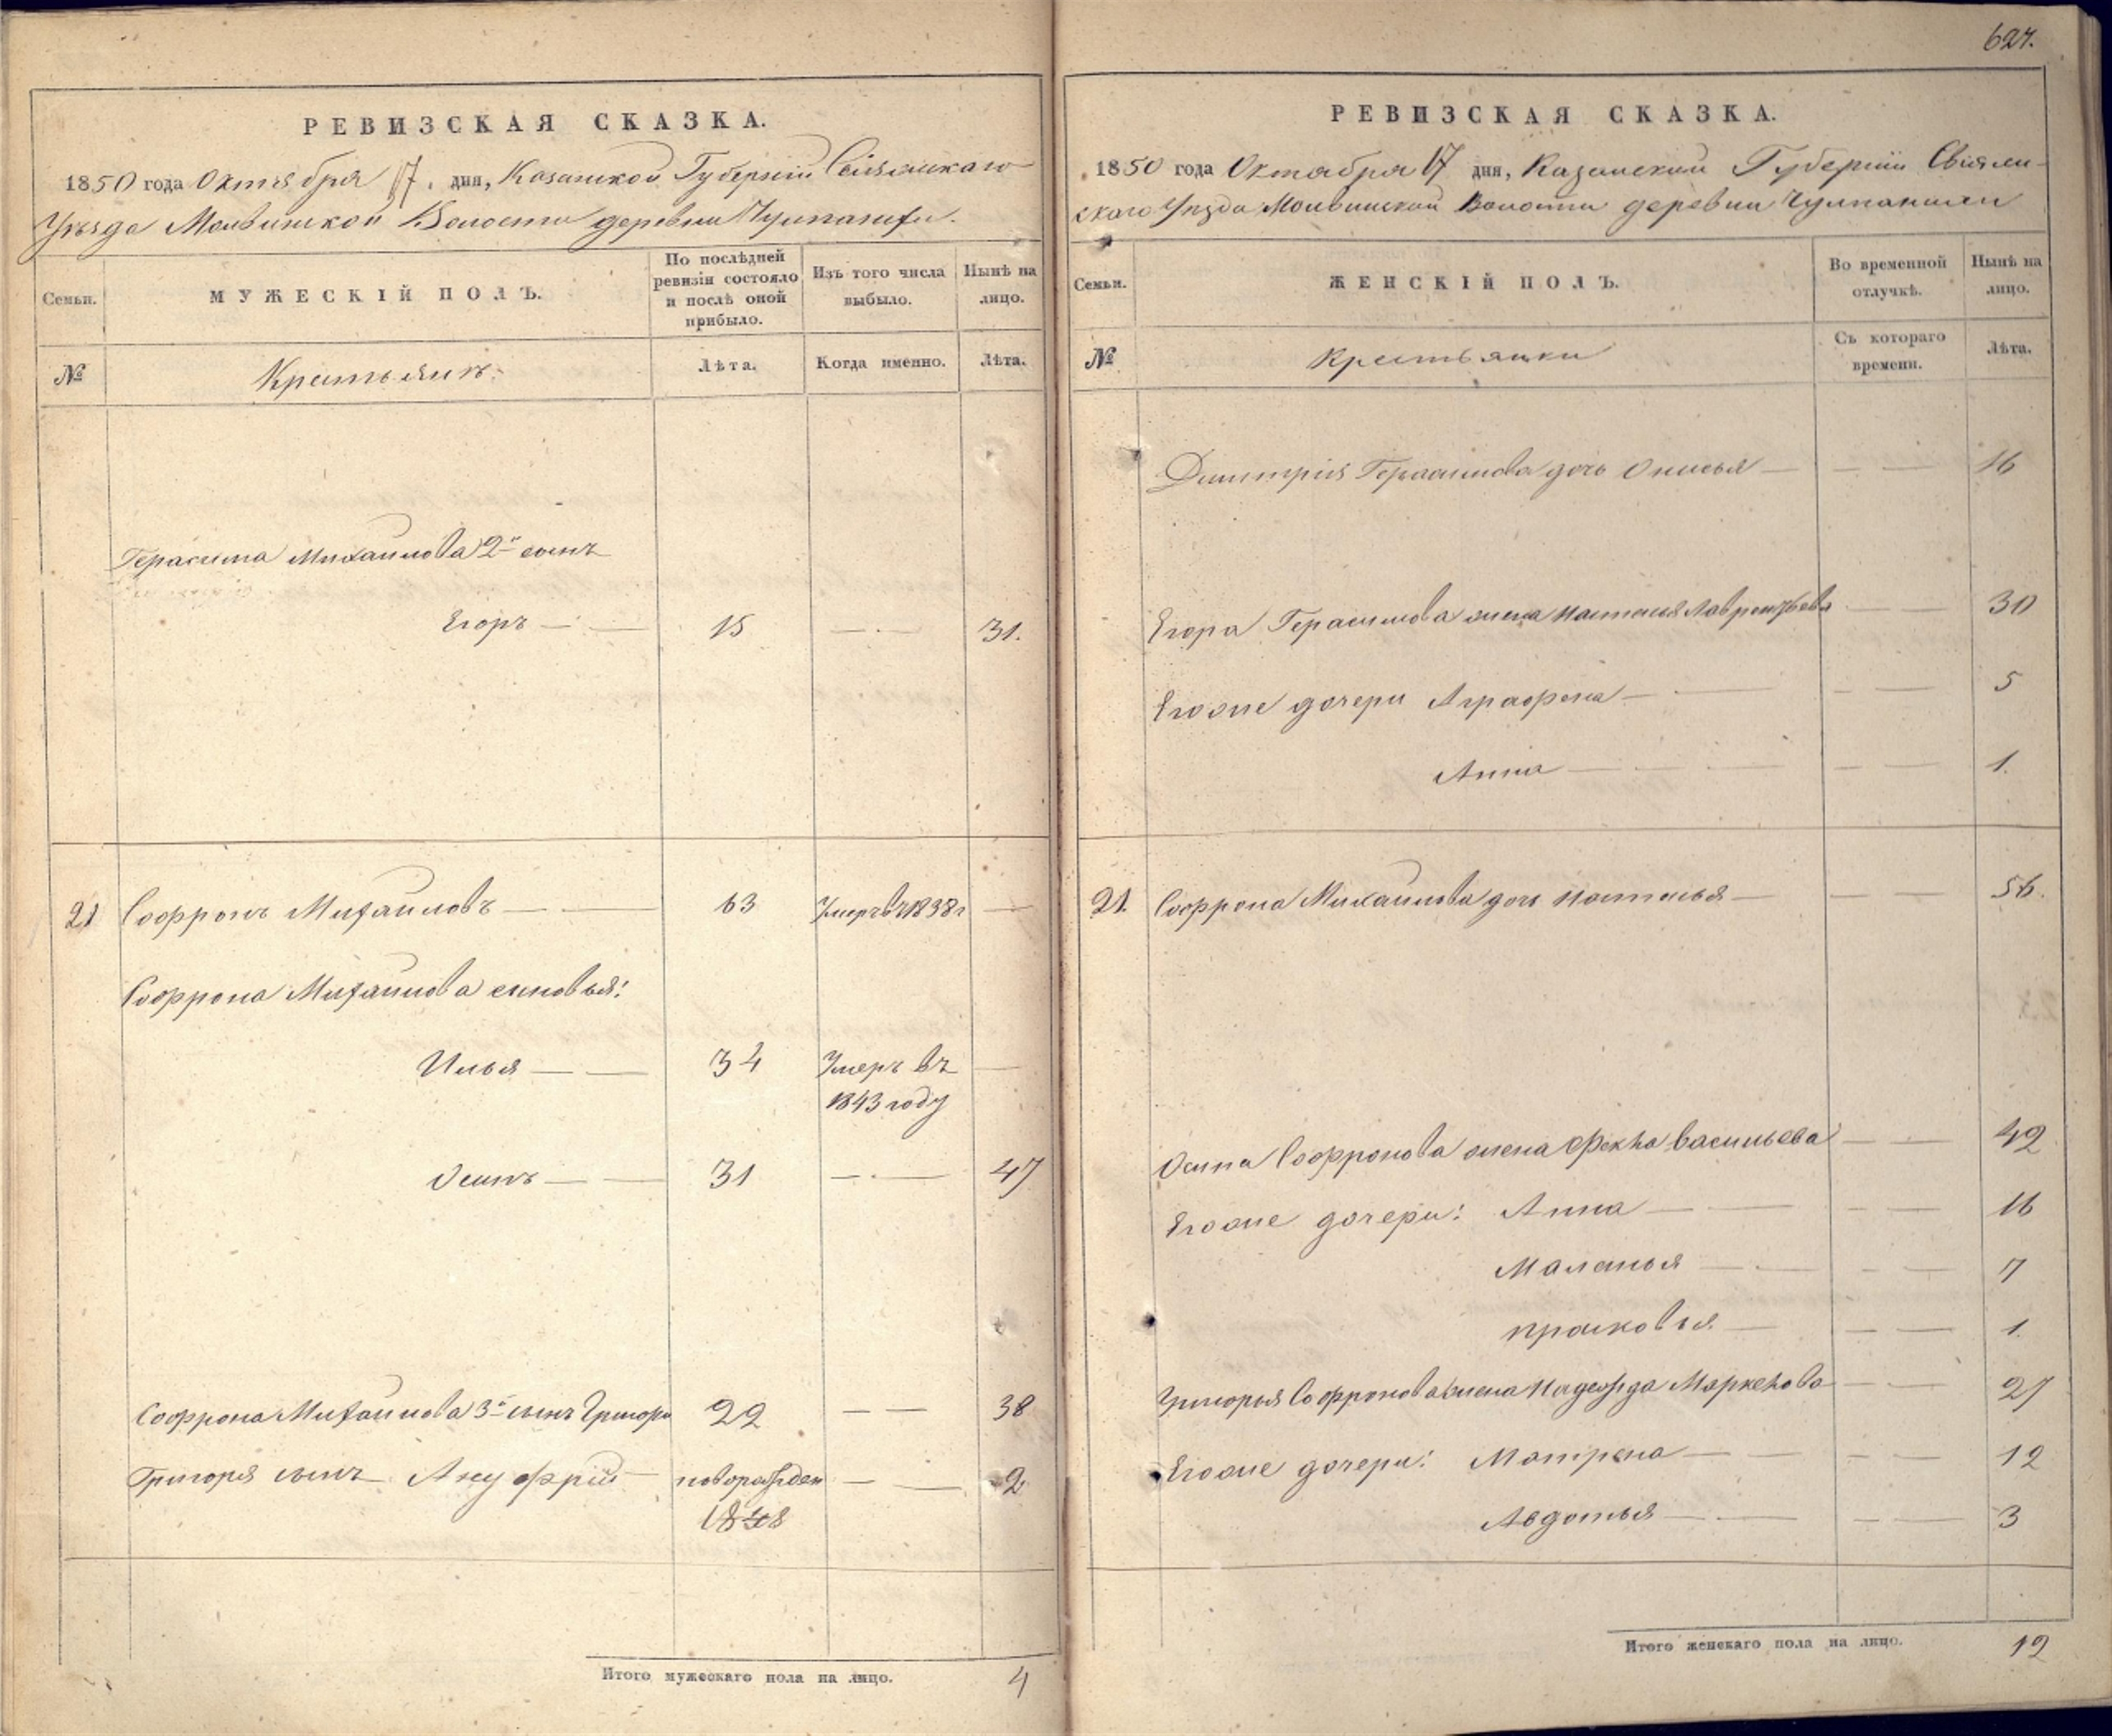 РЕВИЗСКАЯ СКАЗКА.
1850 года Октября 17. дня, Казанской Губерніи Свіяжскаго
Уѣзда Молвинской Волости деревни Чулпанихи.
Семьи.
МУЖЕСКІЙ ПОЛЪ.
По послѣдней ревизіи состояло и послѣ оной прибыло.
Изъ того числа выбыло.
Нынѣ на лицо.
№
Крестьянъ.
Лѣта.
Когда именно.
Лѣта.
Герасима Михайлова 2й сынъ
Егоръ — — 15 — — 31.
21 Софронъ Михайловъ — — 63 Умеръ въ 1838 г —
Софрона Михайлова сыновья:
Илья — — 34 Умеръ въ —
1843 году
Осипъ — — 31 — — 47
Софрона Михайлова 3й сынъ Григори 22 — — 38
Григоря сынъ Ануфрій — новорожден — — 2
1848
Итого мужескаго пола на лицо. 4
627.
РЕВИЗСКАЯ СКАЗКА.
1850 года Октября 17 дня, Казанской Губерніи Свіяж-
скаго Уѣзда Молвинской Волости деревни Чулпанихи
Семьи.
ЖЕНСКІЙ ПОЛЪ.
Во временной отлучкѣ.
Нынѣ на лицо.
№
Крестьянки
Съ котораго времени.
Лѣта.
Димитрія Герасимова дочь Онисья — — — 16
Егора Герасимова жена Настасья Лаврентьева — — 30
Егоже дочери Аграфена — — — — 5
Анна — — — — 1.
21. Софрона Михайлова дочь Наталья — — — 56.
Осипа Софронова жена Фекла Васильева — — 42
Егоже дочери: Анна — — — — 16
Маланья — — — — 7
Прасковья — — — 1.
Григорья Софронова жена Надежда Маркелова — — 27
Егоже дочери: Матрена — — — — 12
Авдотья — — — — 3
Итого женскаго пола на лицо. 12